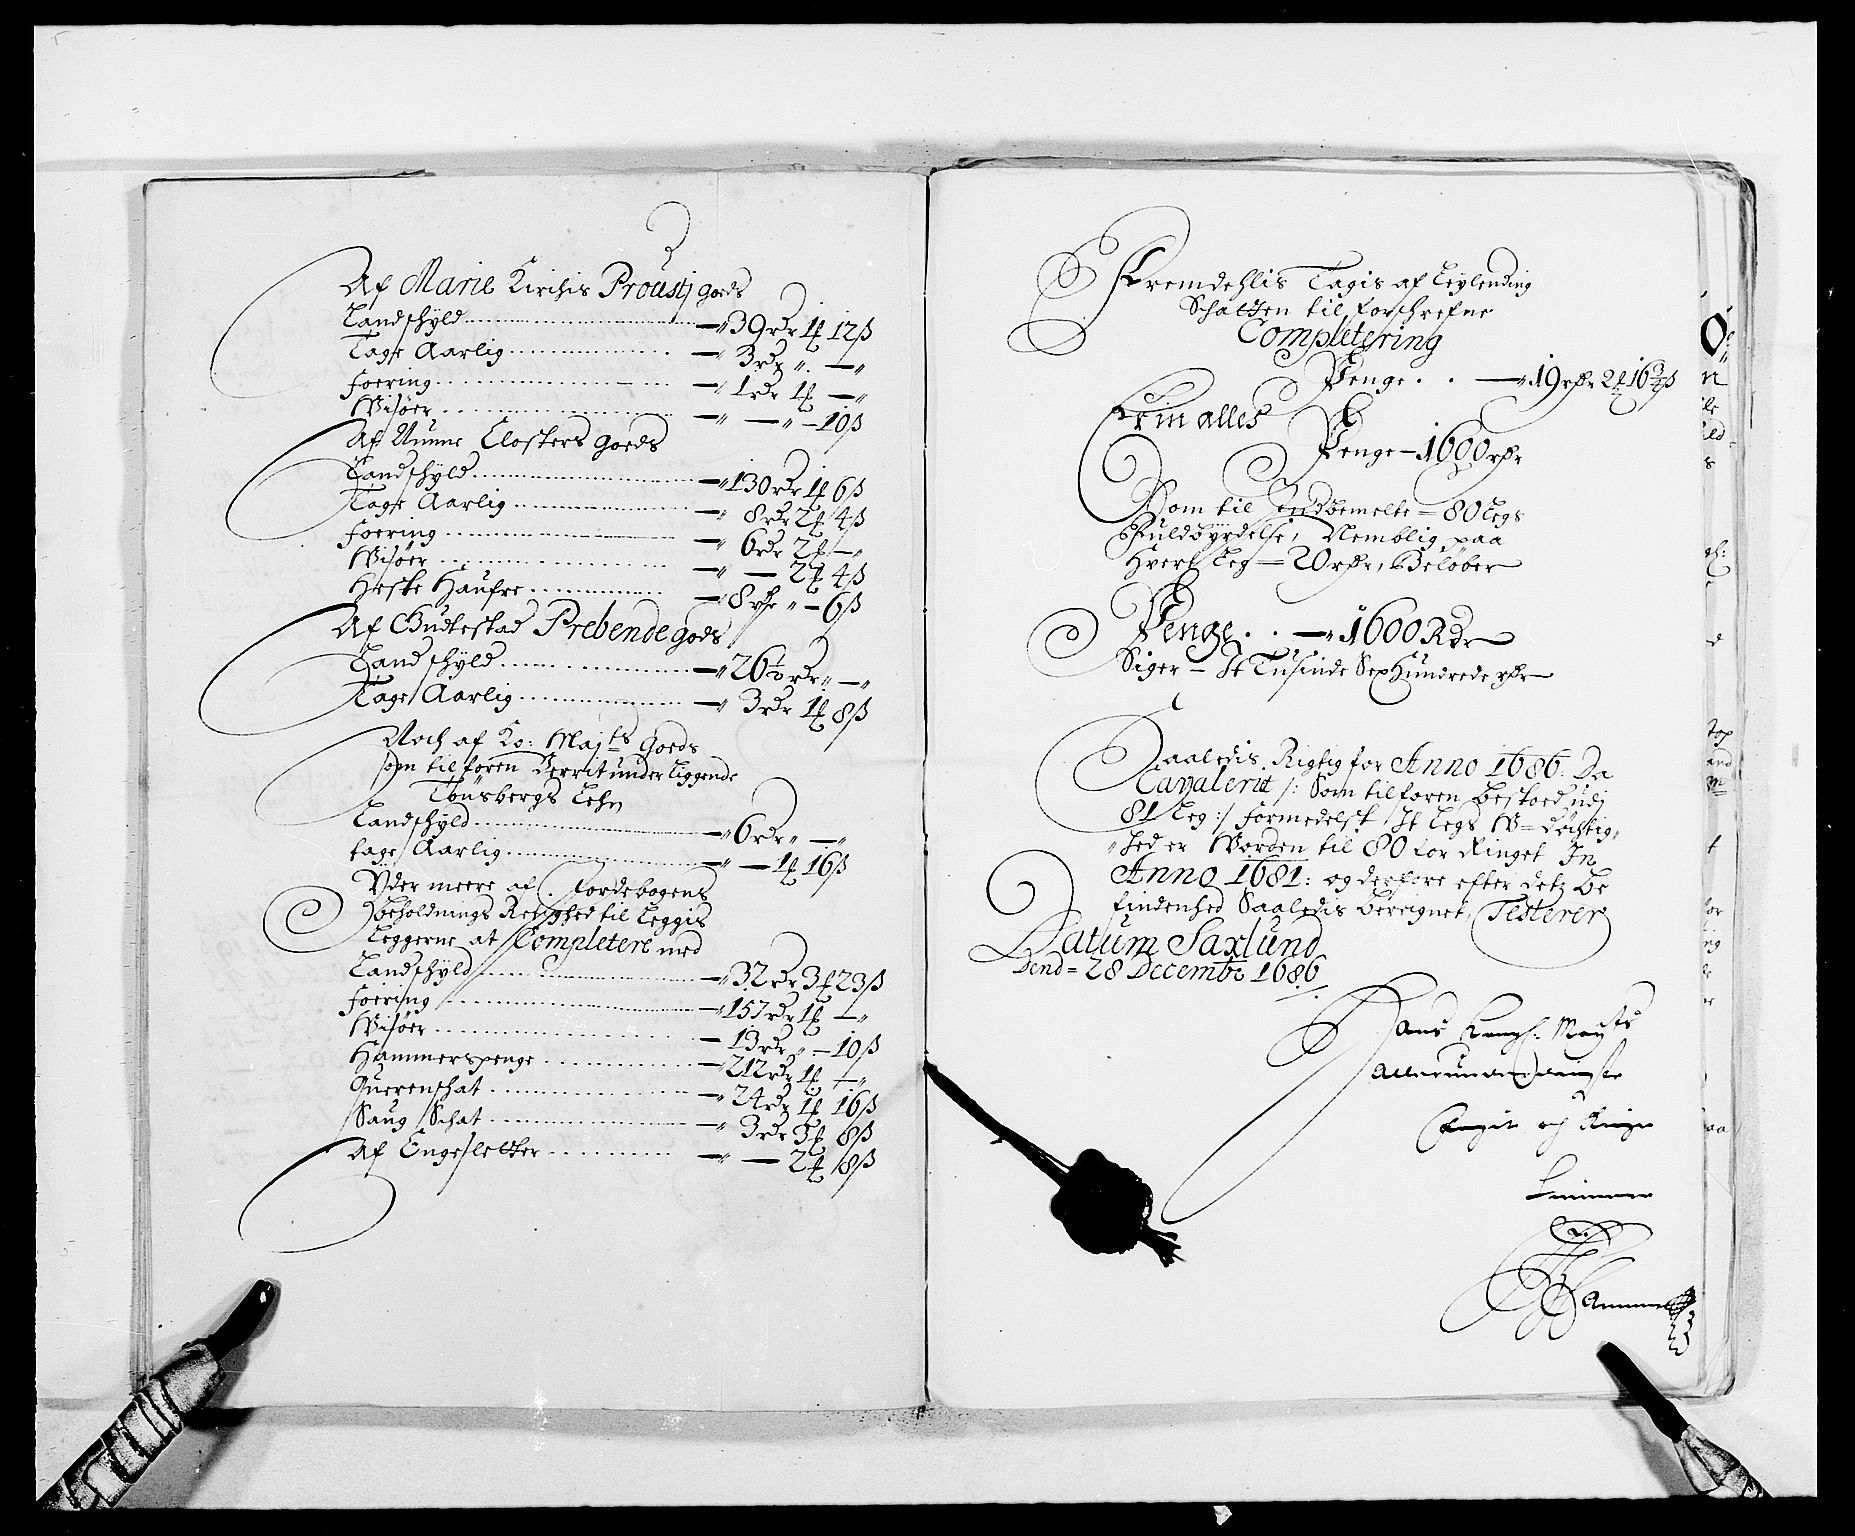 Af Marie Kirchis Proustj goeds
Landschyld — 39 rdr 1 ꝑ 12 ß
Tage Aarlig — 3 rdr „ — „
foering — 1 rdr 1 ꝑ — „
Wisöer — „ — „ — 10 ß
Af Nunne Closters goeds
Landschyld — 130 rdr 1 ꝑ 6 ß
Tage Aarlig — 8 rdr 2 ꝑ 4 ß
foering — 6 rdr 2 ꝑ — „
Wisöer — „ — 2 ꝑ 4 ß
Heste Haufre — 8 rdr „ — 6 ß
Af Gudtestad Prebende gods
Landschyld — 26½ rdr „ — „
Tage Aarlig — 3 rdr 1 ꝑ 8 ß
Noch af Ko: Majts goeds
som tilforen Verrit under Liggende
Tönsbergs Lehn
Landschyld — 6 rdr „ — „
tage Aarlig — „ — 1 ꝑ 16 ß
Yder meere af Jordebogens
beholdnings Retighed til Leggis
Leggerne at Completere med
Landschyld — 32 rdr 3 ꝑ 23 ß
foering — 157 rdr 1 ꝑ — „
Wisöer — 13 rdr „ — 10 ß
Hammerspenge — 212 rdr 1 ꝑ — „
Querenschat — 24 rdr 1 ꝑ 16 ß
Saug Schat — 3 rdr 3 ꝑ 8 ß
Af Engesletter — „ — 2 ꝑ 8 ß
Fremdehlis Tagis af Leylending
Schatten til forschrefne
Completering
Penge — 19 rdr 2 ꝑ 16¾ ß
Er in alles
Penge — 1600 rdr
Som til Indbemelte = 80 Legs
Fuldbyrdelse, Nemblig, paa
Hvert Leg = 20 rdr, Beløber
Penge — 1600 Rdr
Siger — It Tusinde Sex Hundrede rdr
Saaledis Rigtig for Anno 1686. Da
Cavaleriet /: Som tilforen bestoed udj
81 Leg :/ formedelst It Legs W= döchtig„
„hed er Worden til 80 for Ringet In
Anno 1681: og derfore efter detz be
findenhed Saaledis bereignet, Testerer
Datum Saxlund
Dend = 28 Decembr 1686
Hans Kongl: Mayts
Allerunderdanigste